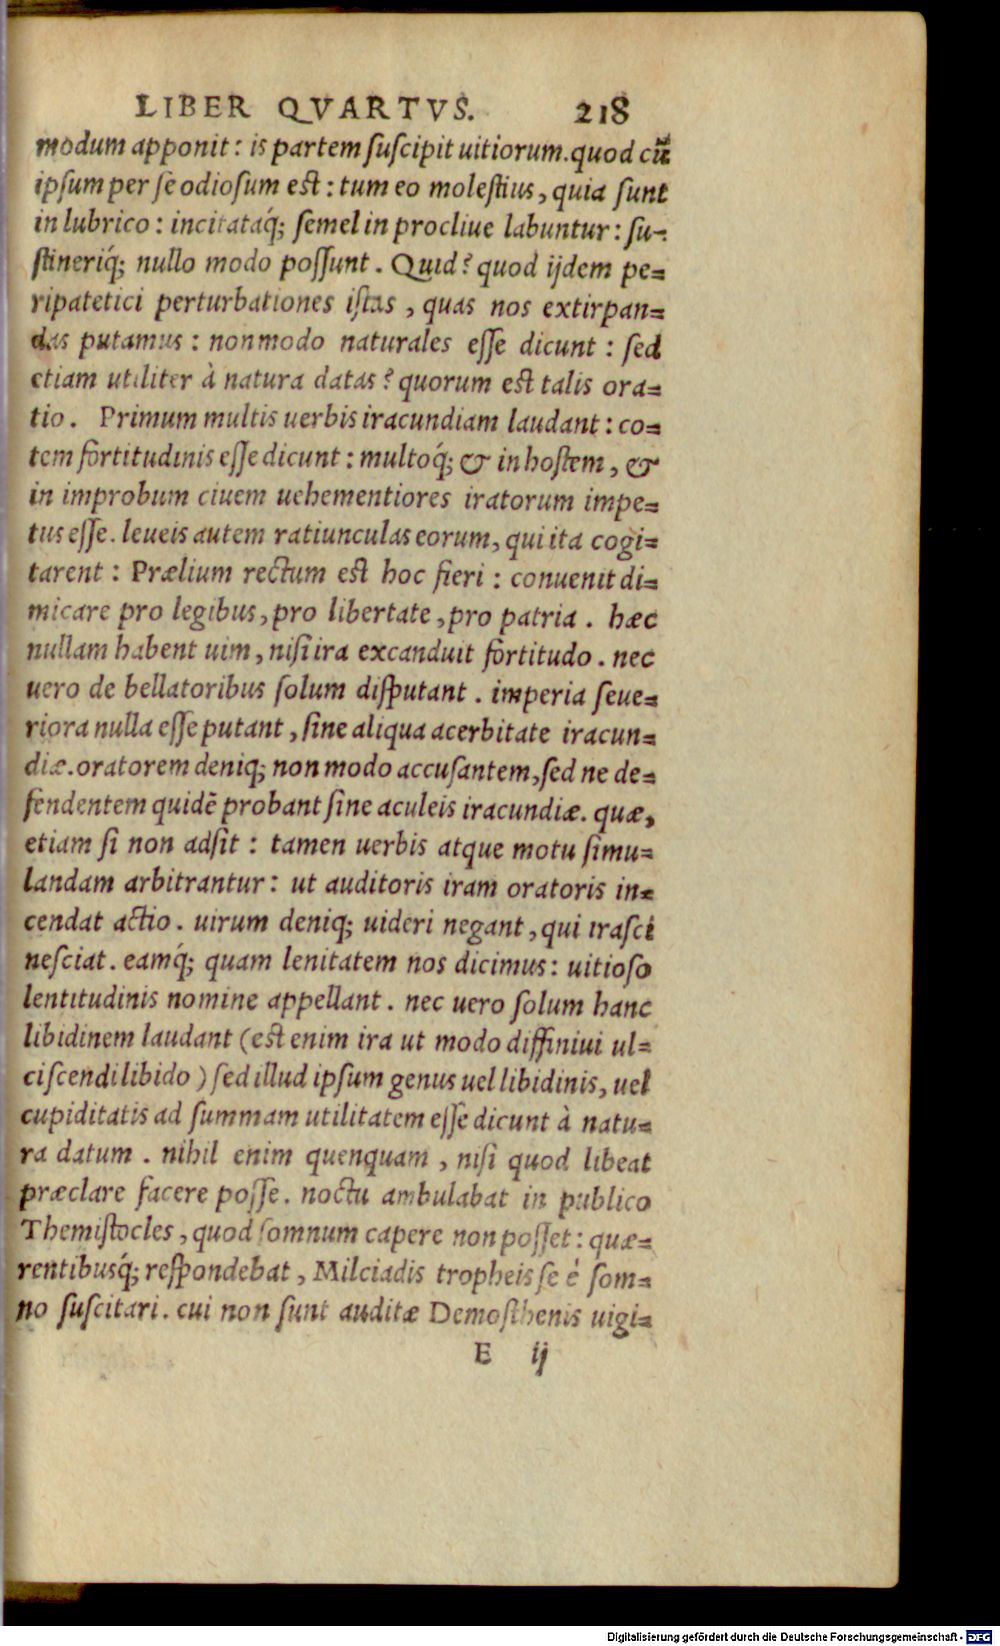 LIBER QVARTVS. 218
modum apponit: is partem ſuſcipit uitiorum. quod cū
ipſum per ſe odioſum eſt: tum eo moleſtius, quia ſunt
in lubrico: incitataq́; ſemel in procliue labuntur: ſu-
ſtineriq́; nullo modo poſſunt. Quid? quod ijdem pe=
ripatetici perturbationes iſtas, quas nos extirpan=
das putamus: nonmodo naturales eſſe dicunt: ſed
etiam utiliter à natura datas? quorum eſt talis ora=
tio. Primum multis uerbis iracundiam laudant: co=
tem fortitudinis eſſe dicunt: multoq́; & in hoſtem, &
in improbum ciuem uehementiores iratorum impe=
tus eſſe. leueis autem ratiunculas eorum, qui ita cogi=
tarent: Prælium rectum eſt hoc fieri: conuenit di=
micare pro legibus, pro libertate, pro patria. hæc
nullam habent uim, niſi ira excanduit fortitudo. nec
uero de bellatoribus ſolum diſputant. imperia ſeue=
riora nulla eſſe putant, ſine aliqua acerbitate iracun=
diæ. oratorem deniq; non modo accuſantem, ſed ne de=
fendentem quidē probant ſine aculeis iracundiæ. quæ,
etiam ſi non adſit: tamen uerbis atque motu ſimu=
landam arbitrantur: ut auditoris iram oratoris in=
cendat actio. uirum deniq; uideri negant, qui iraſci
neſciat. eamq́; quam lenitatem nos dicimus: uitioſo
lentitudinis nomine appellant. nec uero ſolum hanc
libidinem laudant (eſt enim ira ut modo diffiniui ul=
ciſcendi libido) ſed illud ipſum genus uel libidinis, uel
cupiditatis ad ſummam utilitatem eſſe dicunt à natu=
ra datum. nihil enim quenquam, niſi quod libeat
præclare facere poſſe. noctu ambulabat in publico
Themiſtocles, quod ſomnum capere non poſſet: quæ=
rentibusq́; reſpondebat, Milciadis tropheis ſe è ſom=
no ſuſcitari. cui non ſunt auditæ Demoſthenis uigi=
E ij
Digitalisierung gefördert durch die Deutsche Forschungsgemeinschaft - DFG